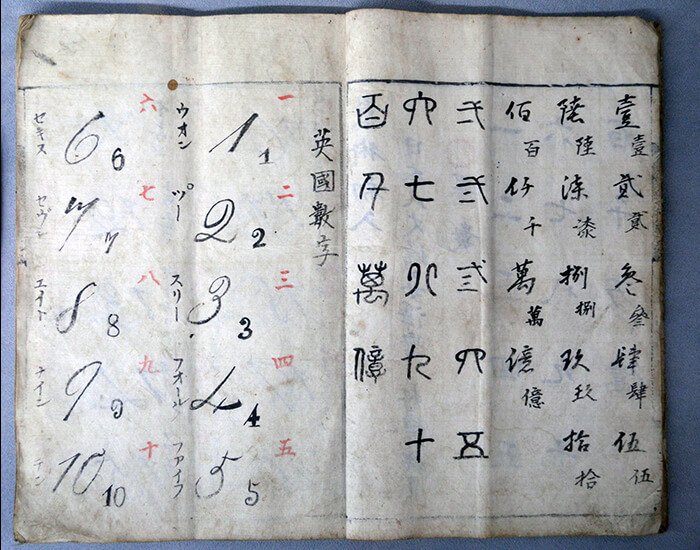 壹 貳 叁 肆 伍
壹 貳 叄 肆 伍
陸 漆 捌 玖 拾
陸 漆 捌 玖 拾
佰 仟 萬 億
百 千 萬 億
弌 弍 弎 四 五
六 七 八 九 十
百 千 萬 億
英國數字
一 二 三 四 五
1 1 2 2 3 3 4 4 5 5
ウオン ツ゚ー スリー フオール ファイフ
六 七 八 九 十
6 6 7 7 8 8 9 9 10 10
セキス セヴン エイト ナイン テン